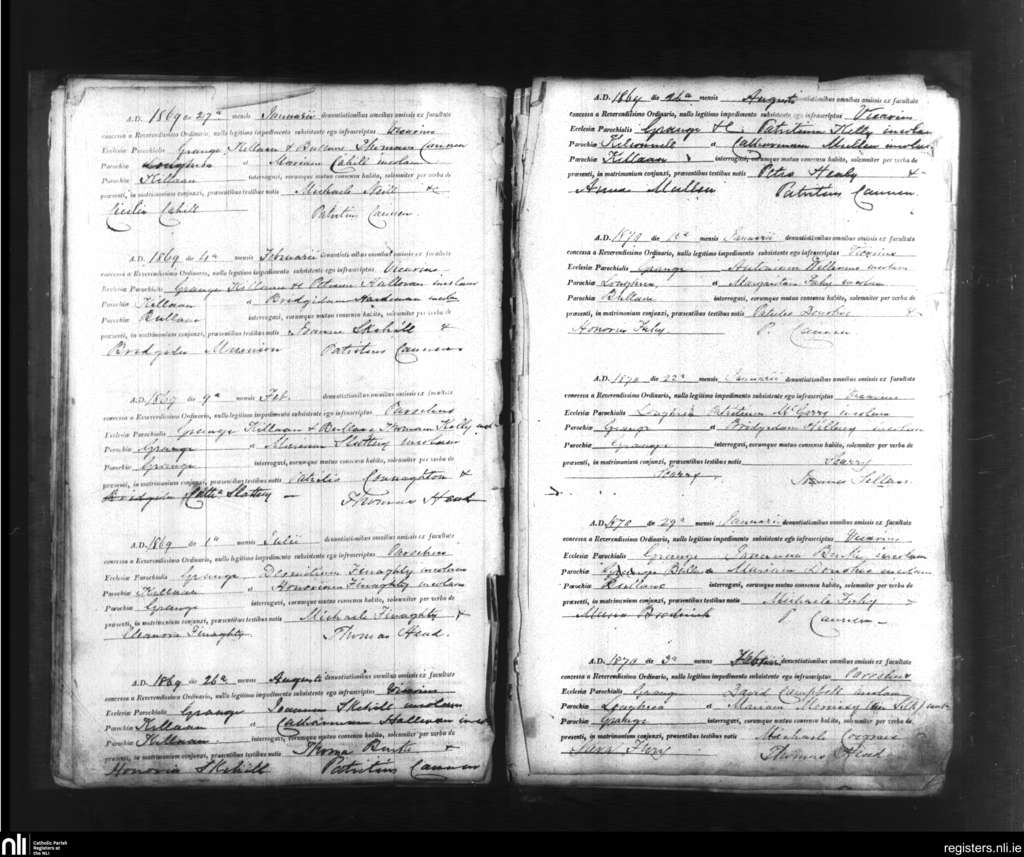 A.D. 1869 27a mensis Januarii denuntiationibus omnibus omissis ex facultate
concessa a Reverendissimo Ordinario, nullo legitimo impedimento subsistente ego infrascriptus Vicarius
Ecclesiæ Parochialis Grange, Killaan & Bullane Thomam Cannen
Parochiæ Loughrea et Mariam Cahill incolam
Parochiæ Killaan interrogavi, eorumque mutuo consensu habito, solemniter per verba de
præsenti, in matrimonium conjunxi, præsentibus testibus notis Michaele Neill &
Cecilia Cahill Patritius Cannen.
A.D. 1869 die 4a mensis Februarii denuntiationibus omnibus omissis ex facultate
concessa a Reverendissimo Ordinario, nullo legitimo impedimento subsistente ego infrascriptus Vicarius
Ecclesiæ Parochialis Grange Killaan & Petrum Halloran incolam
Parochiæ Killaan et Brigidam Hardiman
Parochiæ Bullane interrogavi, eorumque mutuo consensu habito, solemniter per verba de
præsenti, in matrimonium conjunxi, præsentibus testibus notis Joanne Skehill &
Bridgeta Patritius Cannen
A.D. 1869 die 9a mensis Feb. denuntiationibus omnibus omissis ex facultate
concessa a Reverendissimo Ordinario, nullo legitimo impedimento subsistente ego infrascriptus Parochus
Ecclesiæ Parochialis Grange Killaan & Bullane Thomam Kelly
Parochiæ Grange et Mariam Slattery incolam
Parochiæ Grange interrogavi, eorumque mutuo consensu habito, solemniter per verba de
præsenti, in matrimonium conjunxi, præsentibus testibus notis Patritio Connaghton &
Slattery Thomas Head
A.D. 1869 die 1a mensis Julii denuntiationibus omnibus omissis ex facultate
concessa a Reverendissimo Ordinario, nullo legitimo impedimento subsistente ego infrascriptus Parochus
Ecclesiæ Parochialis Grange Finaghty incolam
Parochiæ Killaan et Honoriam Finaghty incolam
Parochiæ Grange interrogavi, eorumque mutuo consensu habito, solemniter per verba de
præsenti, in matrimonium conjunxi, præsentibus testibus notis Michaele Finaghty &
Eleanora Finaghty Thomas Head.
A.D. 1869 die 26a mensis Augusti denuntiationibus omnibus omissis ex facultate
concessa a Reverendissimo Ordinario, nullo legitimo impedimento subsistente ego infrascriptus Vicarius
Ecclesiæ Parochialis Grange Joannem Skehill incolam
Parochiæ Killaan et Catharinam Halloran
Parochiæ Killaan interrogavi, eorumque mutuo consensu habito, solemniter per verba de
præsenti, in matrimonium conjunxi, præsentibus testibus notis Thoma Burke &
Honoria Skehill Patritius Cannen
A.D. 1869 die 26a mensis Augusti denuntiationibus omnibus omissis ex facultate
concessa a Reverendissimo Ordinario, nullo legitimo impedimento subsistente ego infrascriptus Vicarius
Ecclesiæ Parochialis Grange &c. Patritium Kelly incolam
Parochiæ Kilconnell et Catharinam Mullen incolam
Parochiæ Killaan interrogavi, eorumque mutuo consensu habito, solemniter per verba de
præsenti, in matrimonium conjunxi, præsentibus testibus notis Petro Healy &
Anna Mullen Patritius Cannen.
A.D. 1870 mensis Januarii denuntiationibus omnibus omissis ex facultate
concessa a Reverendissimo Ordinario, nullo legitimo impedimento subsistente ego infrascriptus Vicarius
Ecclesiæ Parochialis Grange Antonium incolam
Parochiæ Loughrea et Margaritam Fahy incolam
Parochiæ Bullane interrogavi, eorumque mutuo consensu habito, solemniter per verba de
præsenti, in matrimonium conjunxi, præsentibus testibus notis Patritio &
Honoria Fahy P. Cannen
A.D. 1870 die 22a mensis Januarii denuntiationibus omnibus omissis ex facultate
concessa a Reverendissimo Ordinario, nullo legitimo impedimento subsistente ego infrascriptus Vicarius
Ecclesiæ Parochialis Loughrea Patritium incolam
Parochiæ Grange et Bridgidam Hillery incolam
Parochiæ Grange interrogavi, eorumque mutuo consensu habito, solemniter per verba de
præsenti, in matrimonium conjunxi, præsentibus testibus notis Scarry
Scarry
A.D. 1870 die 29a mensis Januarii denuntiationibus omnibus omissis ex facultate
concessa a Reverendissimo Ordinario, nullo legitimo impedimento subsistente ego infrascriptus Vicarius
Ecclesiæ Parochialis Grange Joannem Burke incolam
Parochiæ Grange et Mariam incolam
Parochiæ Bullane interrogavi, eorumque mutuo consensu habito, solemniter per verba de
præsenti, in matrimonium conjunxi, præsentibus testibus notis Michaele Fahy &
Maria Broderick P Cannen
A.D. 1870 die 3a mensis denuntiationibus omnibus omissis ex facultate
concessa a Reverendissimo Ordinario, nullo legitimo impedimento subsistente ego infrascriptus Parochus
Ecclesiæ Parochialis Grange David Campbell incolam
Parochiæ Loughrea et Mariam
Parochiæ Grange interrogavi, eorumque mutuo consensu habito, solemniter per verba de
præsenti, in matrimonium conjunxi, præsentibus testibus notis Michaele
Thomas Head
nli Catholic Parish
Registers at
the NLI
registers.nli.ie